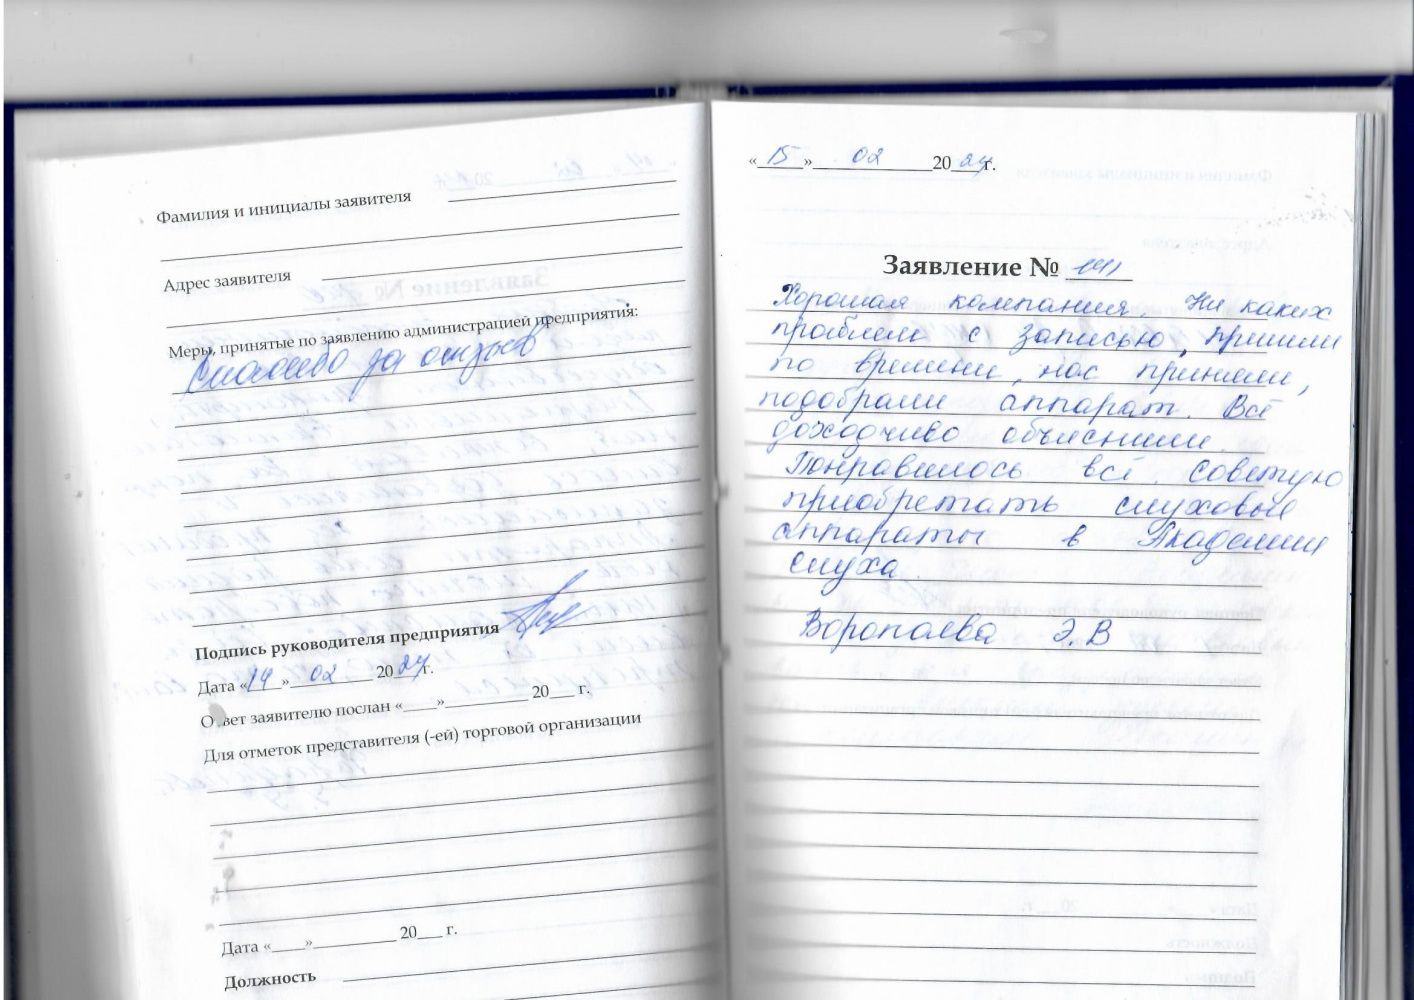 Фамилия и инициалы заявителя
Адрес заявителя
Меры, принятые по заявлению администрацией предприятия:
Спасибо за отзыв
Подпись руководителя предприятия
Дата «14» 02 2024 г.
Ответ заявителю послан «____»__________ 20___ г.
Для отметок представителя (-ей) торговой организации
Дата «____»__________ 20___ г.
Должность
«15» 02 2024г.
Заявление № 141
Хорошая компания. Ни каких
проблем с записью, пришли
по времени, нас приняли,
подобрали аппарат. Всё
доходчиво объяснили.
Понравилось всё. Советую
приобретать слуховые
аппараты в Академии
слуха.
Воропаева Э.В